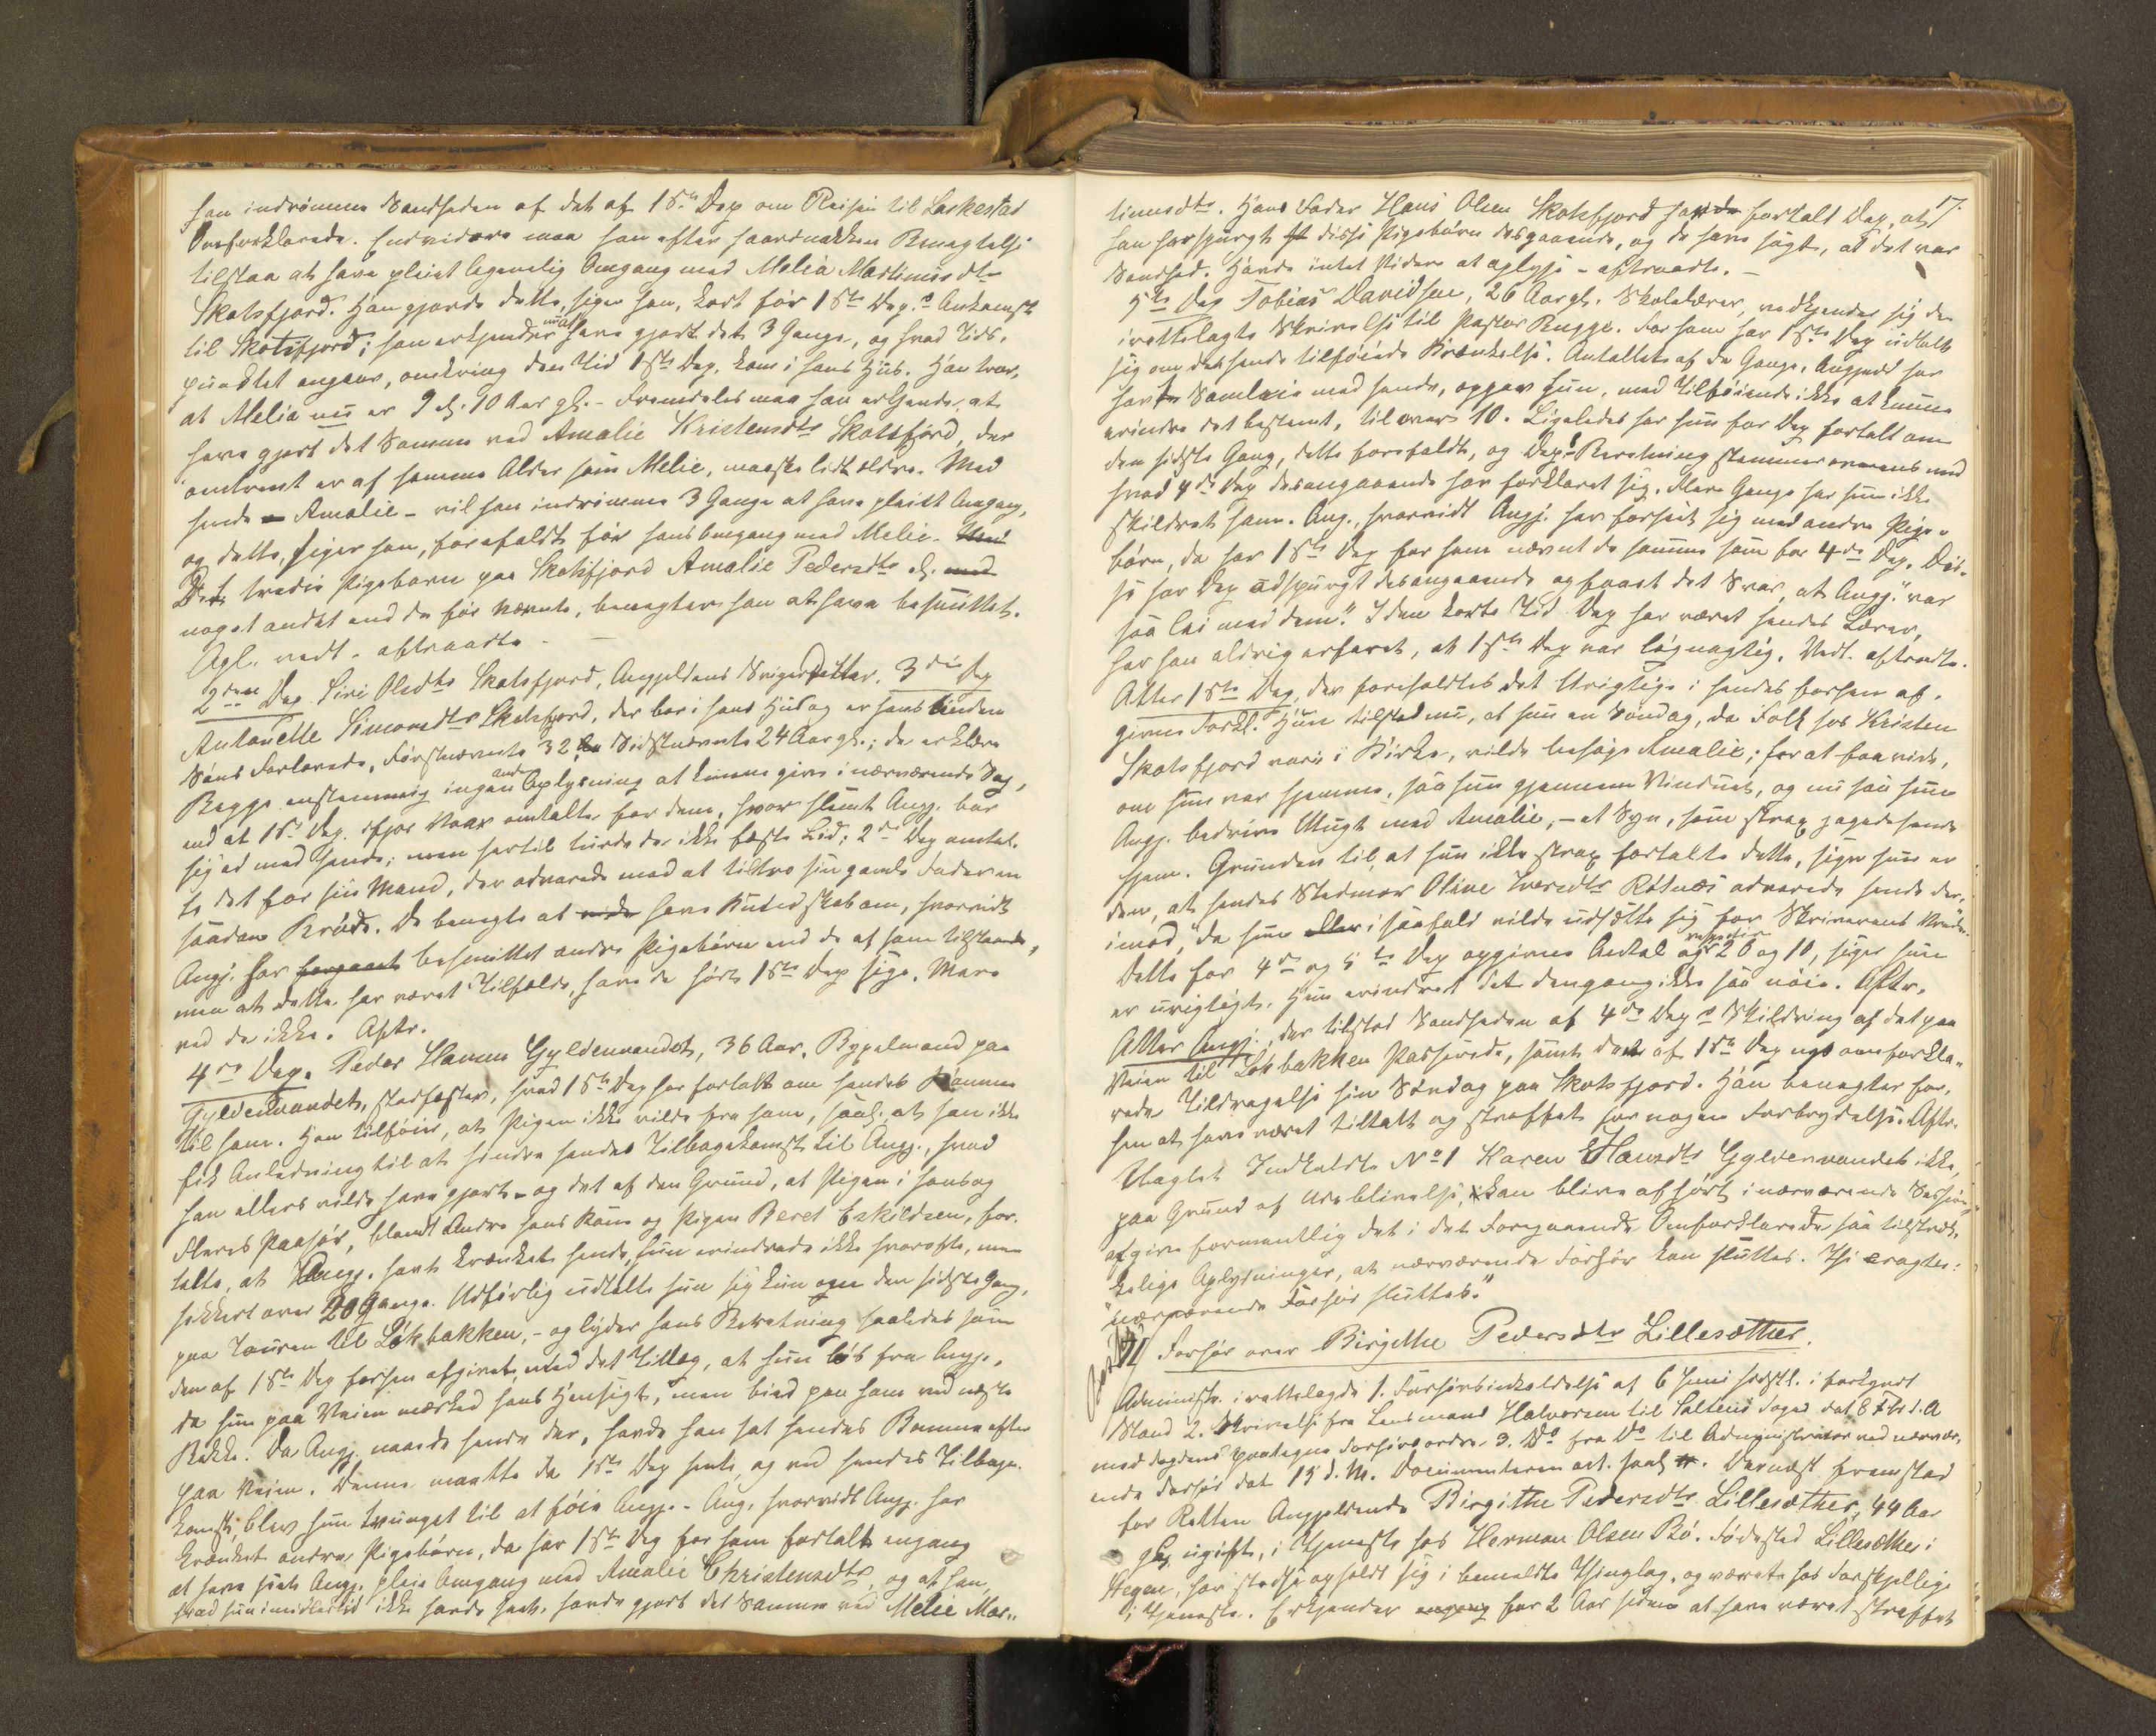 han indrømmer Sandheden af det af 1ste Dep om Reisen til Laskestad
Omforklarede. Endvidere maa han efter haardnakken Benægtelse
tilstaa at have pleiet legemelig Omgang med Melia Martinusdtr
Skotsfjord. Han gjorde dette, siger han, kort før 1ste Dep.s Ankomst
til Skotsfjord; han erkjender nu at have gjort det 3 Gange, og hvad Tids-
punktet angaar, omkring den Tid 1ste Dep. kom i hans Hus. Han tror,
at Melia nu er 9 el. 10 Aar gl. - Fremdeles maa han erkjende, at
have gjort det Samme ved Amalie Kristensdtr Skotsfjord, der
omtrent er af samme Alder som Melie, maaske lidt ældre. Med
hende - Amalie - vil han indrømme 3 Gange at have pleiet Omgang,
og dette, siger han, forefaldt før hans Omgang med Melie.
Det tredie Pigebarn paa Skotsfjord Amalie Pedersdtr el.
noget andet end de før nævnte, benegter han at have besmittet.
Opl. vedt. aftraadte. —
2den Dep Siri Olsdtr Skotsfjord, Angjeldens Svigerdatter, 3die Dep
Antonette Simonsdtr Skotsfjord, der bor i hans Hus og er hans anden
Søns Forlovede, Førstnævnte 32, Sidstnævnte 24 Aar gl.; de erklære
Begge enstemmig ingen anden Oplysning at kunne give i nærværende Sag,
end at 1ste Dep. ifjor Vaar omtalte for dem, hvor slemt Angj. bar
sig ad med hende; men hertil turde de ikke fæste Lid; 2den Dep omtal-
te det for sin Mand, der advarede mod at tiltro sin gamle Fader en
saadan Brøde. De benegte at have Kundskab om, hvorvidt
Angj. har besmittet andre Pigebørn end de af ham tilstaaede,
men at dette har været Tilfælde, have de hørt 1ste Dep sige. Mere
ved de ikke. Aftr.
4de Dep. Peder Hansen Gyldenvandet, 36 Aar, Bygselmand paa
Gyldenvandet, stadfæster, hvad 1ste Dep har fortalt om hendes Komme
til ham. Han tilføier, at Pigen ikke vilde fra ham, saal. at han ikke
fik Anledning til at hindre hendes Tilbagekomst til Angj., hvad
han ellers vilde have gjort - og det af den Grund, at Pigen i hans og
Fleres Paahør, blandt Andre hans Kone og Pigen Beret Eskildsen, for-
talte, at Angj. havt krænket hende, hun erindrede ikke hvorofte, men
sikkert over 20 Gange. Udførlig udtalte hun sig kun om den sidste Gang,
paa Touren til Løkbakken, - og lyder hans Beretning saaledes som
den af 1ste Dep herom afgivet, med det Tillæg, at hun løb fra Angj.,
da hun paa Veien mærked hans Hensigt, men bied paa ham ved næste
Bække. Da Angj. naaede hende der, havde han sat hendes Bomme efter
paa Veien. Denne maatte da 1ste Dep hente, og ved hendes Tilbage-
komst, blev hun tvunget til at føie Angj. - Ang. hvorvidt Angj. har
krænket andre Pigebørn, da har 1ste Dep for ham fortalt engang
at have seet Angj. pleie Omgang med Amalie Christensdtr, og at han,
hvad hun imidlertid ikke havde seet, havde gjort det Samme ved Melie Mar-
17.
tinusdtr. Hans Fader Hans Olsen Skotsfjord har fortalt Dep., at
han har spurgt disse Pigebørn desgaaende, og de have sagt, at det var
Sandhed. Havde intet Videre at oplyse - aftraadte. —
5te Dep Tobias Davidsen, 26 Aar gl. Skolelærer, vedkjender sig den
irettelagte Skrivelse til Pastor Bugge. For ham har 1ste Dep udtalt
sig om det hende tilføiede Krænkelse. Antallet af de Gange, Angjeld har
havt Samleie med hende, opgav hun, med Tilføiende ikke at kunne
erindre det bestemt, til over 10. Ligeledes har hun for Dep fortalt om
den sidste Gang, dette forefaldt, og Dep.s Beretning stemmer overens med
hvad 4de Dep desangaaende har forklaret sig. Flere Gange har hun ikke
skildret ham. Ang., hvorvidt Angj. har forseet sig med andre Pige-
børn, da har 1ste Dep for ham nævnt de samme som for 4de Dep. Dis-
se har Dep adspurgt desangaaende og faaet det Svar, at Angj. "var
saa lei med dem". I den korte Tid Dep har været hendes Lærer,
har han aldrig erfaret, at 1ste Dep var løgnagtig. Vedt. aftraadte.
Atter 1ste Dep, der foreholdtes det Urigtige i hendes herom af-
givne Forkl. Hun tilstod nu, at hun en Søndag, da Folk hos Kristen
Skotsfjord vare i Kirke, vilde besøge Amalie; for at faa vide,
om hun var hjemme, saa hun gjennem Vinduet, og nu saa hun
Angj. bedrive Utugt med Amalie, - et Syn, som strax jagede hende
hjem. Grunden til, at hun ikke strax fortalte dette, siger hun er
den, at hendes Stedmor Oline Iversdtr Røtnæs advarede hende der-
imod, "da hun i saafald vilde udsætte sig for Skriverens Vrede".
Dette for 4de og 5te Dep opgivne Antal af respective 20 og 10, siger hun
er urigtigt. Hun erindret det dengang ikke saa nøie. Aftr.
Atter Angj., der tilstod Sandheden af 4de Dep.s Skildring af det paa
Veien til Løkbakken Passerede, samt det af 1ste Dep nys omforkla-
rede Tildragelse hin Søndag paa Skotsfjord. Han benegter for-
hen at have været tiltalt og straffet for nogen Forbrydelse. Aftr.
Uagtet Indkaldte No 1 Karen Hansdtr Gyldenvandet ikke,
paa Grund af Udeblivelse, kan blive afhørt i nærværende Session,
afgive formentlig det i det Foregaaende Omforklarede saa tilstræk-
kelige Oplysninger, at nærværende Forhør kan sluttes. Thi eragtes:
"nærværende Forhør sluttes."
Forhør over Birgithe Pedersdtr Lillesæther.
Administr. irettelagde 1. Forhørsindkaldelse af 6 Juni sidstl. i forkyndt
Stand 2. Skrivelse fra Lensmand Halvorsen til Saltens Foged dat 8 Fbr d. A
med Fogdens paategnede Forhørsordre. 3. Do fra Do til Administrator ved nærvær-
ende Forhør dat 15 d. M. Documenterne act. saal. Dernæst fremstod
for Retten Angjeldende Birgithe Pedersdtr Lillesæther, 44 Aar
gl, ugift, i Tjeneste hos Herman Olsen Bø. Fødested Lillesæther i
Stegen, har stedse opholdt sig i bemeldte Thinglag, og været hos Forskjellige
i Tjeneste. Erkjender for 2 Aar siden at have været straffet